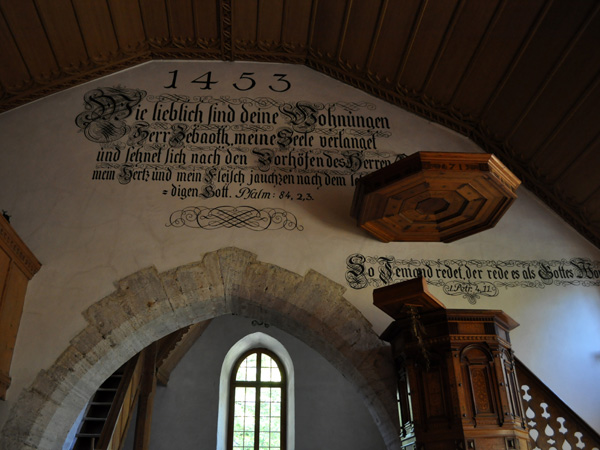 1453
Wie lieblich sind deine Wohnungen
Herr Zebaoth, meine Seele verlanget
und sehnet sich nach den Vorhöfen des Herren
mein Hertz und mein Fleisch jauchzen nach dem
=digen Gott. Psalm: 84, 2,3.
So Jemand redet, der rede es als Gottes
1. Petr: 4,11.